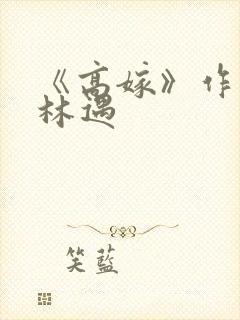 《高嫁》作
林遇
笑藍